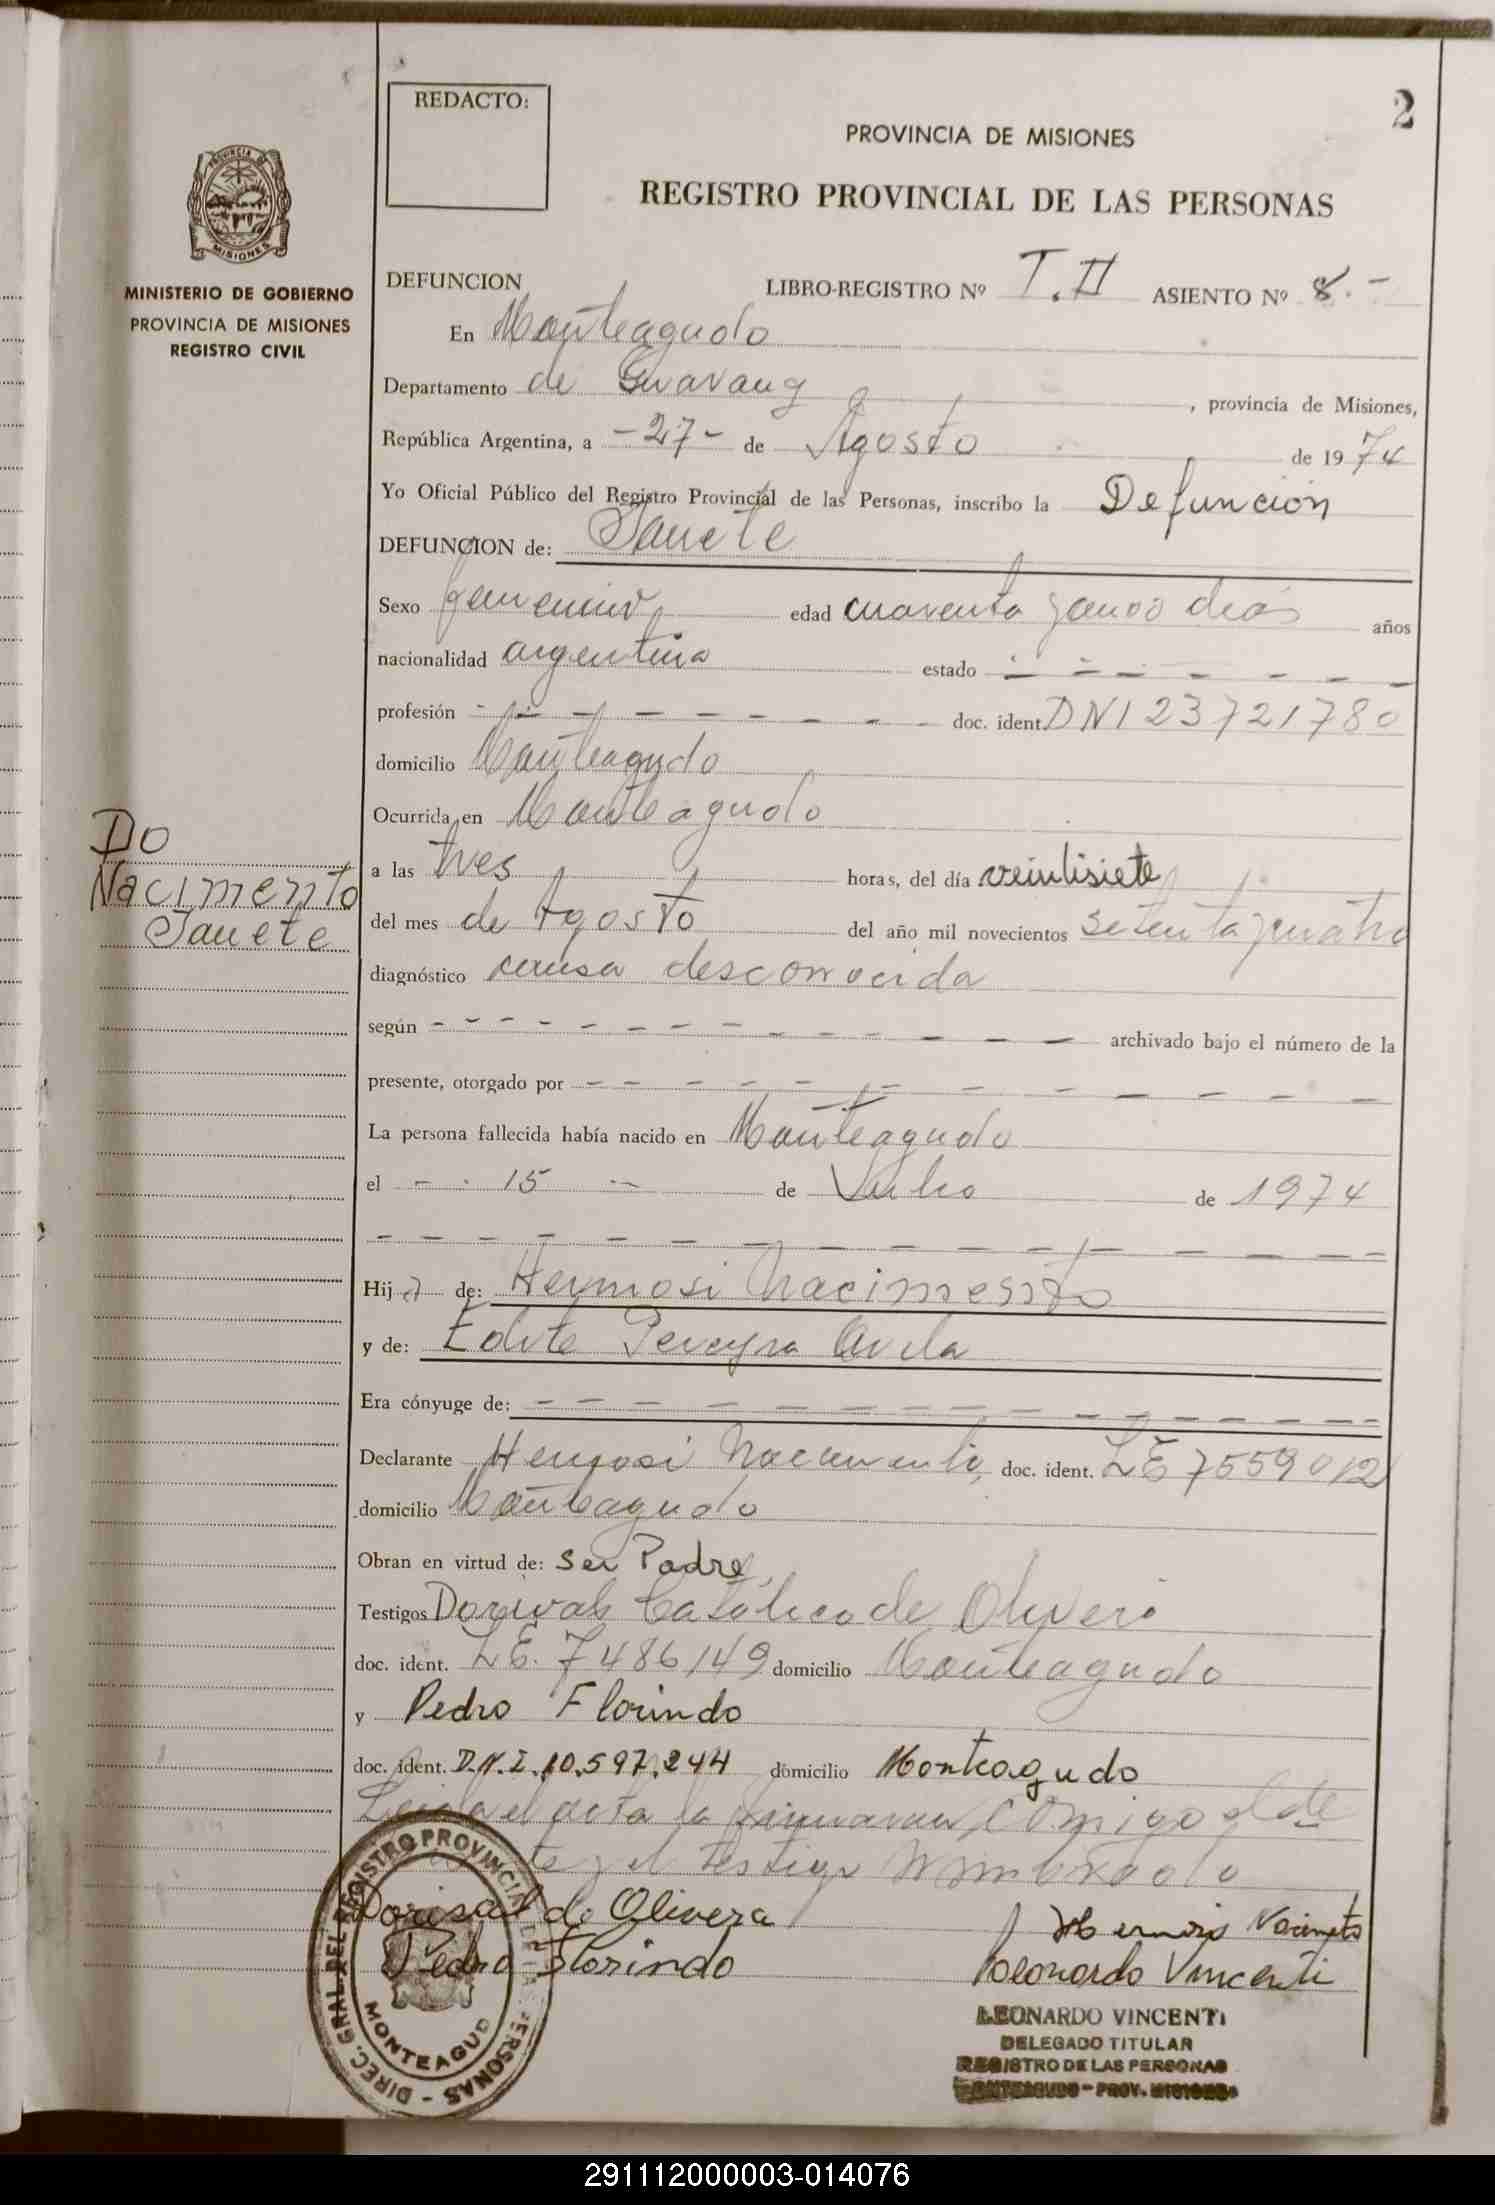 REDACTO:
2
PROVINCIA DE MISIONES
REGISTRO PROVINCIAL DE LAS PERSONAS
PROVINCIA DE
MISIONES
MINISTERIO DE GOBIERNO
PROVINCIA DE MISIONES
REGISTRO CIVIL
DEFUNCION LIBRO-REGISTRO Nº T. II ASIENTO Nº 8.-
En Monteagudo
Departamento de Guarany, provincia de Misiones,
República Argentina, a -27- de Agosto de 1974
Yo Oficial Público del Registro Provincial de las Personas, inscribo la Defunción
DEFUNCION de: Janete
Sexo femenino edad cuarenta y días años
nacionalidad argentina estado - - - - - - -
profesión - - - - - - - - doc. ident. DNI 23721780
domicilio Monteagudo
Ocurrida en Monteagudo
a las tres horas, del día veintisiete
del mes de Agosto del año mil novecientos setenta y cuatro
diagnóstico causa desconocida
según - - - - - - - - - - - - archivado bajo el número de la
presente, otorgado por - - - - - - - - - - - -
La persona fallecida había nacido en Monteagudo
el - . 15 - de Julio de 1974
- - - - - - - - - - - - - - - - -
Hija de: Hermosi Nacimento
y de: Edite Pereyra Avila
Era cónyuge de: - - - - - - - - - - - - - -
Declarante Hermosi Nacimento, doc. ident. LE 7559012
domicilio Monteagudo
Obran en virtud de: Ser Padre,
Testigos Dorival Católico de Olivera
doc. ident. LE. 7486149 domicilio Monteagudo
y Pedro Florindo
doc. ident. D.N.I. 10.597.244 domicilio Monteagudo
Leida el acta la firmaran comigo el de
te y el testigo nombrado
Dorival de Olivera
Pedro Florindo
Nacimeto
Leonardo Vincenti
LEONARDO VINCENTI
DELEGADO TITULAR
REGISTRO DE LAS PERSONAS
MONTEAGUDO - PROV. MISIONES
DIREC. GRAL. DEL REGISTRO PROVINCIAL DE LAS PERSONAS -
MONTEAGUDO
DO
Nacimento
Janete
291112000003-014076